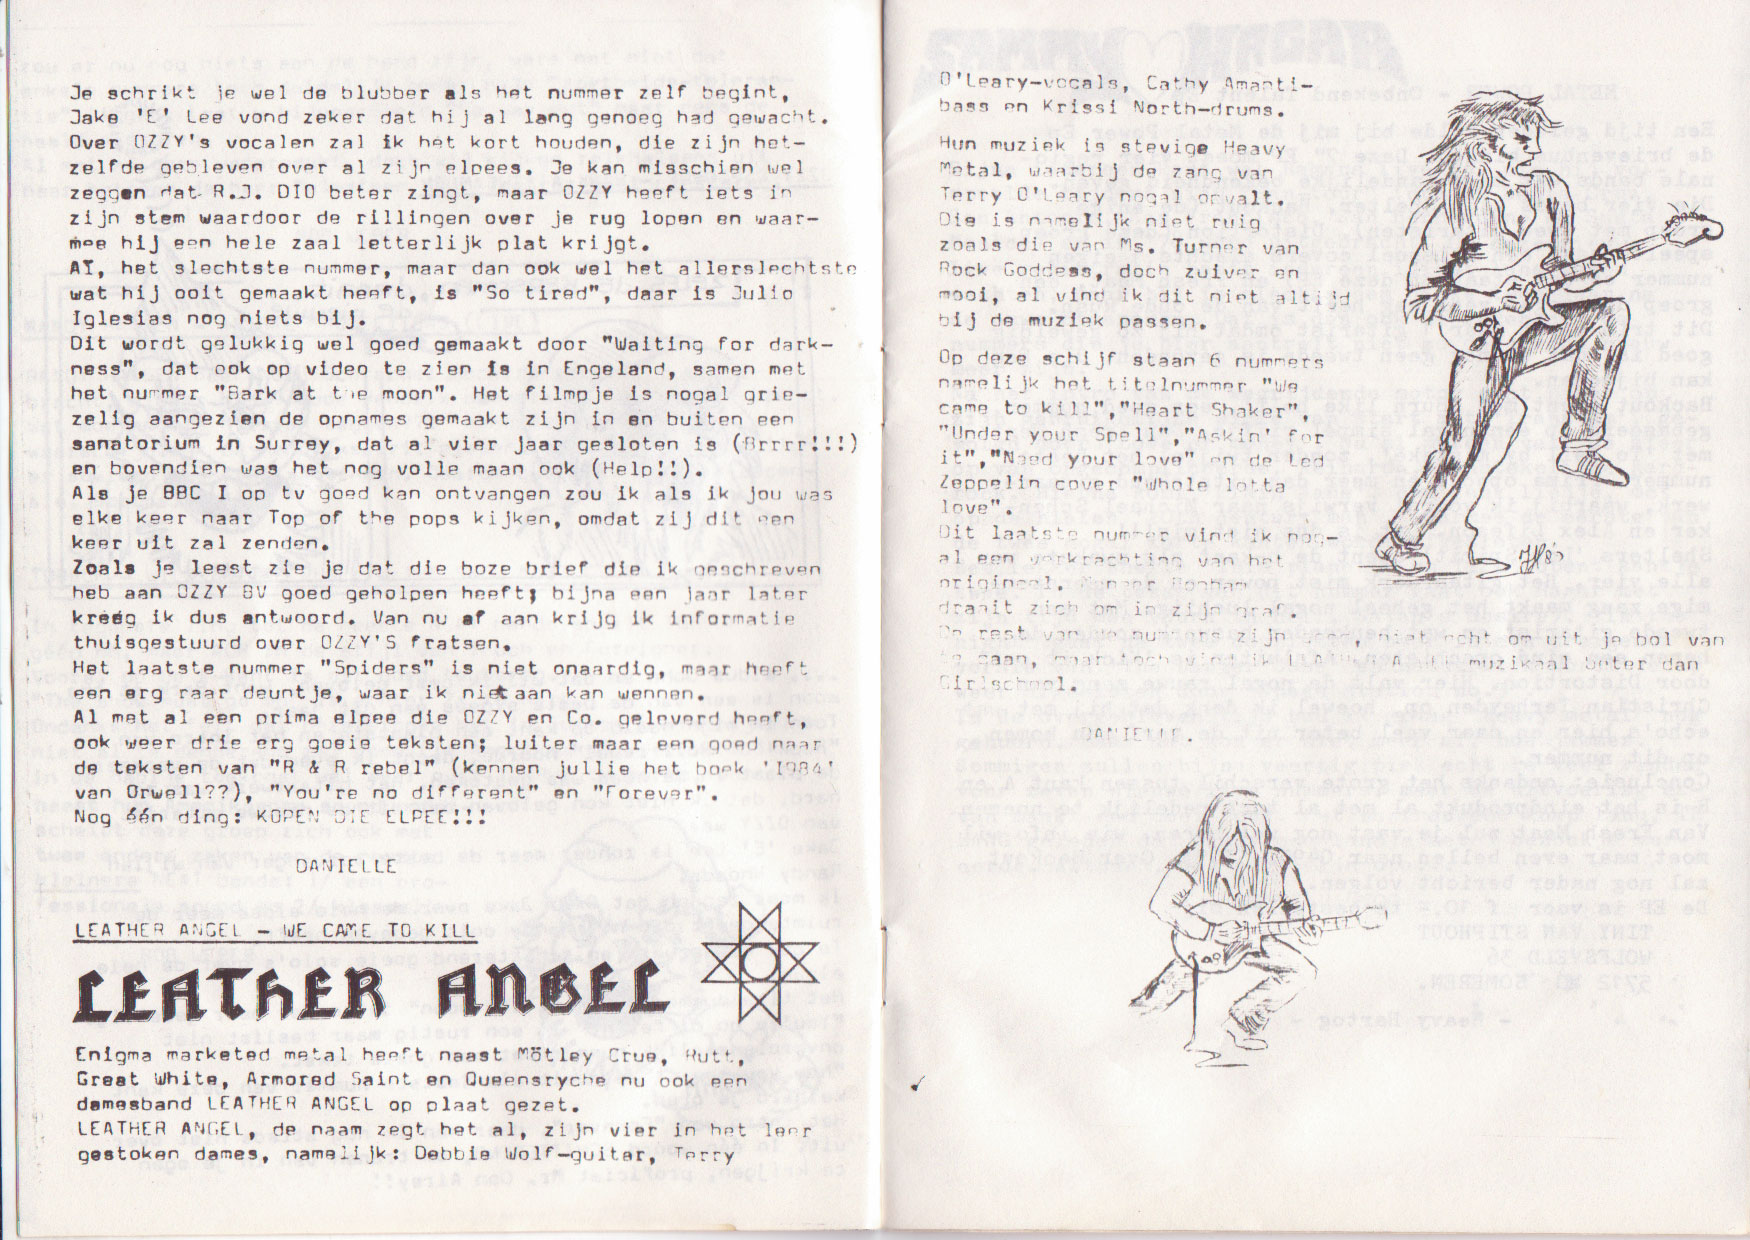 Je schrikt je wel de blubber als het nummer zelf begint,
Jake 'E' Lee vond zeker dat hij al lang genoeg had gewacht.
Over OZZY's vocalen zal ik het kort houden, die zijn het-
zelfde gebleven over al zijn elpees. Je kan misschien wel
zeggen dat R.J. DIO beter zingt, maar OZZY heeft iets in
zijn stem waardoor de rillingen over je rug lopen en waar-
mee hij een hele zaal letterlijk plat krijgt.
AT, het slechtste nummer, maar dan ook wel het allerslechtste
wat hij ooit gemaakt heeft, is "So tired", daar is Julio
Iglesias nog niets bij.
Dit wordt gelukkig wel goed gemaakt door "Waiting for dark-
ness", dat ook op video te zien is in Engeland, samen met
het nummer "Bark at the moon". Het filmpje is nogal grie-
zelig aangezien de opnames gemaakt zijn in en buiten een
sanatorium in Surrey, dat al vier jaar gesloten is (Brrrr!!!)
en bovendien was het nog volle maan ook (Help!!).
Als je BBC I op tv goed kan ontvangen zou ik als ik jou was
elke keer naar Top of the pops kijken, omdat zij dit een
keer uit zal zenden.
Zoals je leest zie je dat die boze brief die ik geschreven
heb aan OZZY BV goed geholpen heeft; bijna een jaar later
kreég ik dus antwoord. Van nu af aan krijg ik informatie
thuisgestuurd over OZZY'S fratsen.
Het laatste nummer "Spiders" is niet onaardig, maar heeft
een erg raar deuntje, waar ik niet aan kan wennen.
Al met al een prima elpee die OZZY en Co. geleverd heeft,
ook weer drie erg goeie teksten; luiter maar een goed naar
de teksten van "R & R rebel" (kennen jullie het boek '1984'
van Orwell??), "You're no different" en "Forever".
Nog één ding: KOPEN DIE ELPEE!!!
DANIELLE
LEATHER ANGEL - WE CAME TO KILL
LEATHER ANGEL
Enigma marketed metal heeft naast Mötley Crue, Rutt,
Great White, Armored Saint en Queensryche nu ook een
damesband LEATHER ANGEL op plaat gezet.
LEATHER ANGEL, de naam zegt het al, zijn vier in het leer
gestoken dames, namelijk: Debbie Wolf-guitar, Terry
O'Leary-vocals, Cathy Amanti-
bass en Krissi North-drums.
Hun muziek is stevige Heavy
Metal, waarbij de zang van
Terry O'Leary nogal opvalt.
Die is namelijk niet ruig
zoals die van Ms. Turner van
Rock Goddess, doch zuiver en
mooi, al vind ik dit niet altijd
bij de muziek passen.
Op deze schijf staan 6 nummers
namelijk het titelnummer "We
came to kill","Heart Shaker",
"Under your Spell","Askin' for
it","Need your love" en de Led
Zeppelin cover "Whole lotta
love".
Dit laatste nummer vind ik nog-
al een verkrachting van het
origineel. Meneer Bonham
draait zich om in zijn graf.
De rest van de nummers zijn goed, niet echt om uit je bol van
te gaan, maar toch vind ik LEATHER ANGEL muzikaal beter dan
Girlschool.
DANIELLE.